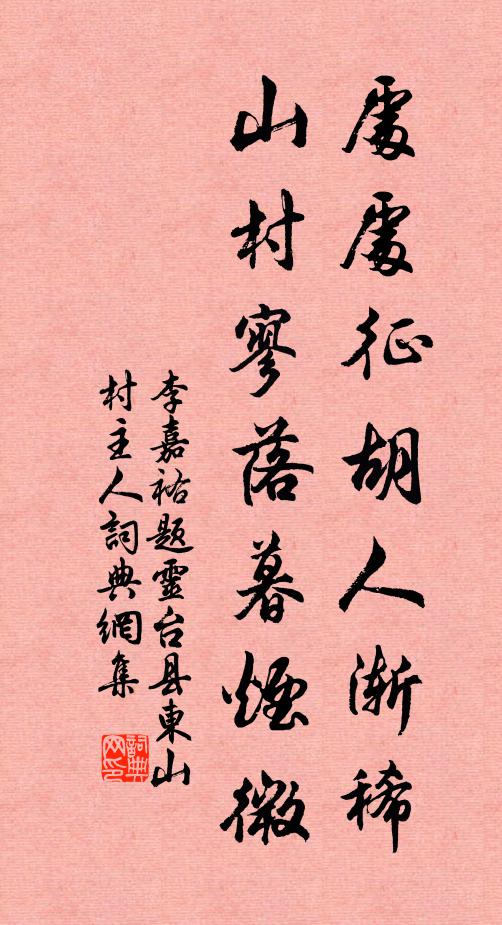 處處征胡人漸稀
山村寥落暮煙微
李嘉祐题靈台县東山
村主人詞典網集
詞典
网印